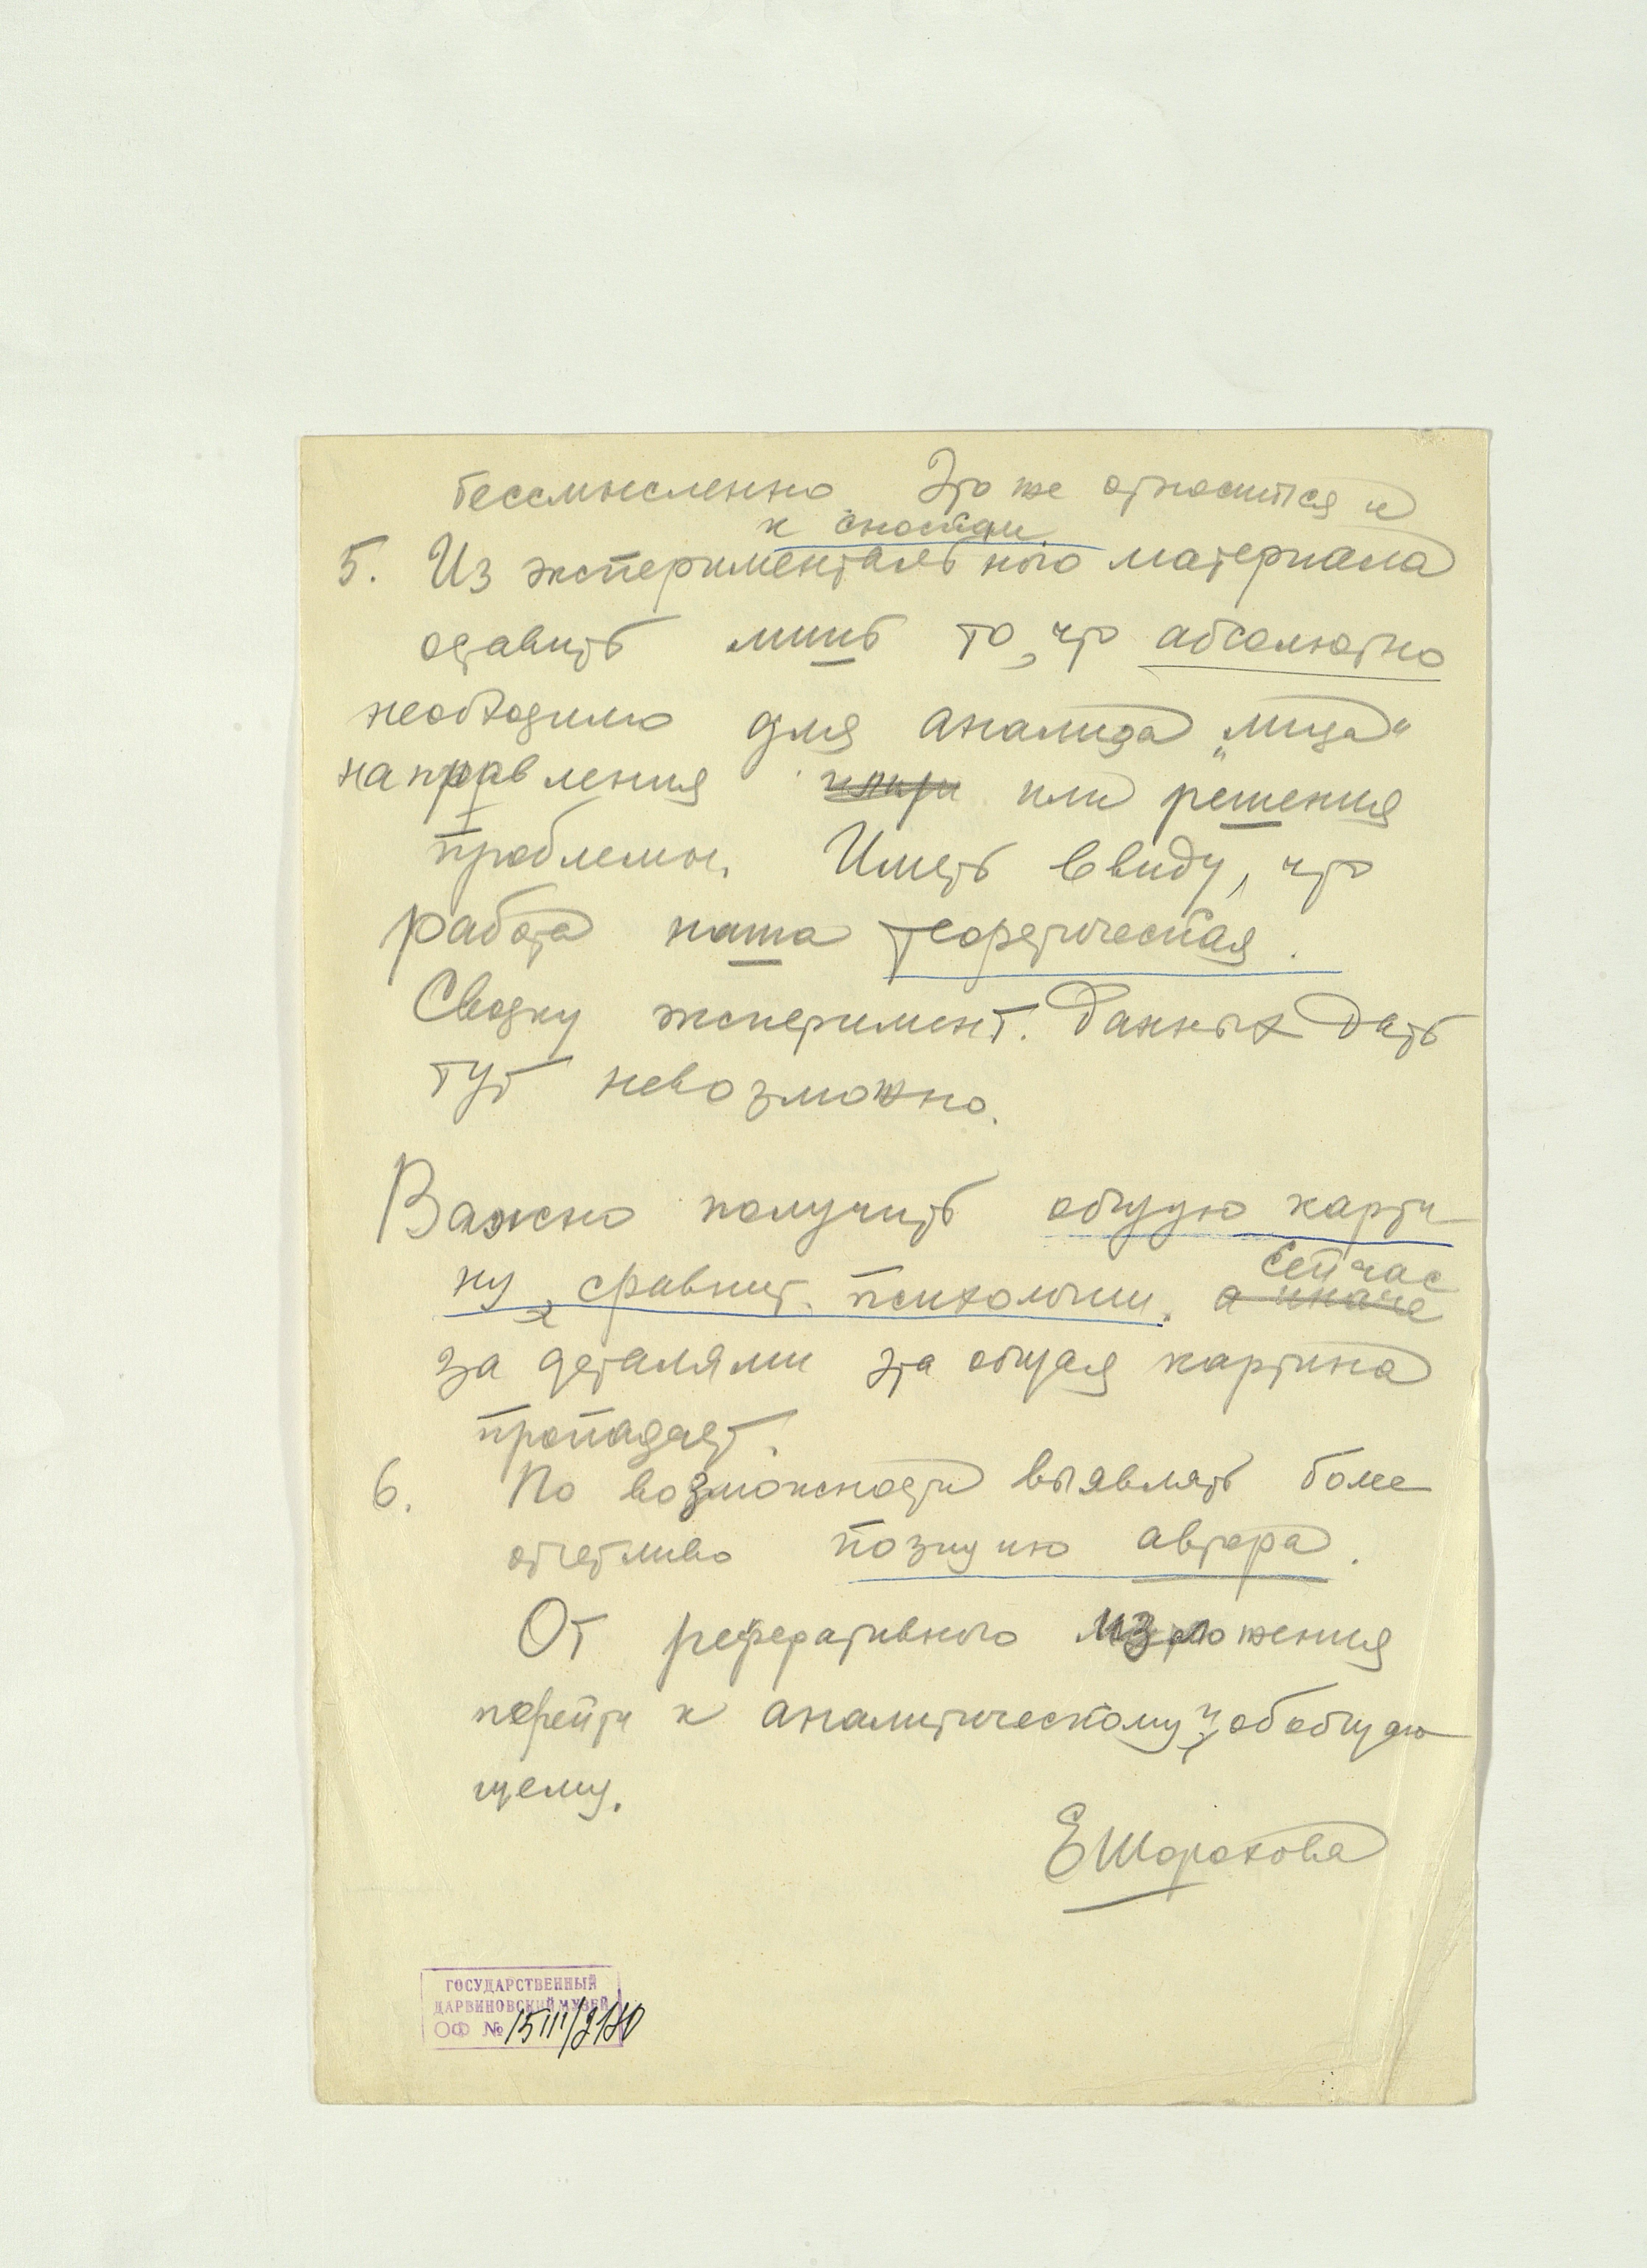 бессмысленно Это же относится и
к сноскам.
5. Из экспериментального материала
оставить лишь то, что абсолютно
необходимо для анализа „лица"
направления или решения
проблемы. Иметь ввиду, что
работа наша теоретическая.
Сводку эксперимент. данных дать
тут невозможно.
Важно получить общую карти
ну сравнит. психологии. Сейчас
а иначе
за деталями эта общая картина
пропадает.
6. По возможности выявлять более
отчетливо позицию автора.
От реферативного изложения
перейти к аналитическому и обобщаю
щему.
ЕШорохова
ГОСУДАРСТВЕННЫЙ
ДАРВИНОВСКИЙ МУЗЕЙ
ОФ № 15111/2180